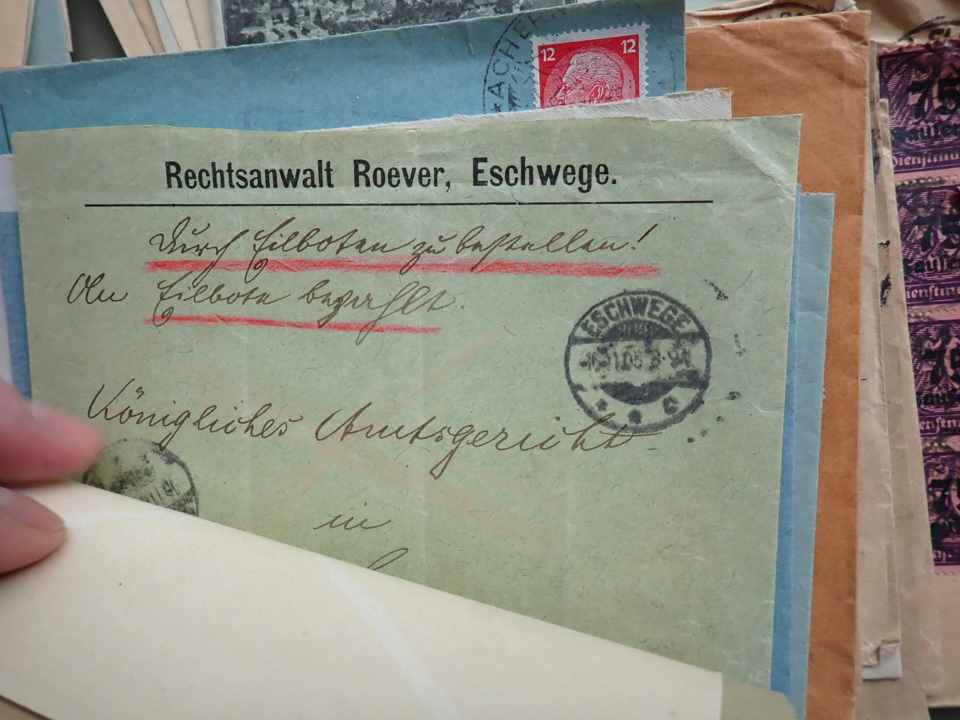 12 12
ACHE
Rechtsanwalt Roever, Eschwege.
Durch Eilboten zu bestellen!
Eilbote bezahlt.
ESCHWEGE
Königliches Amtsgericht
in
75
75
75
75